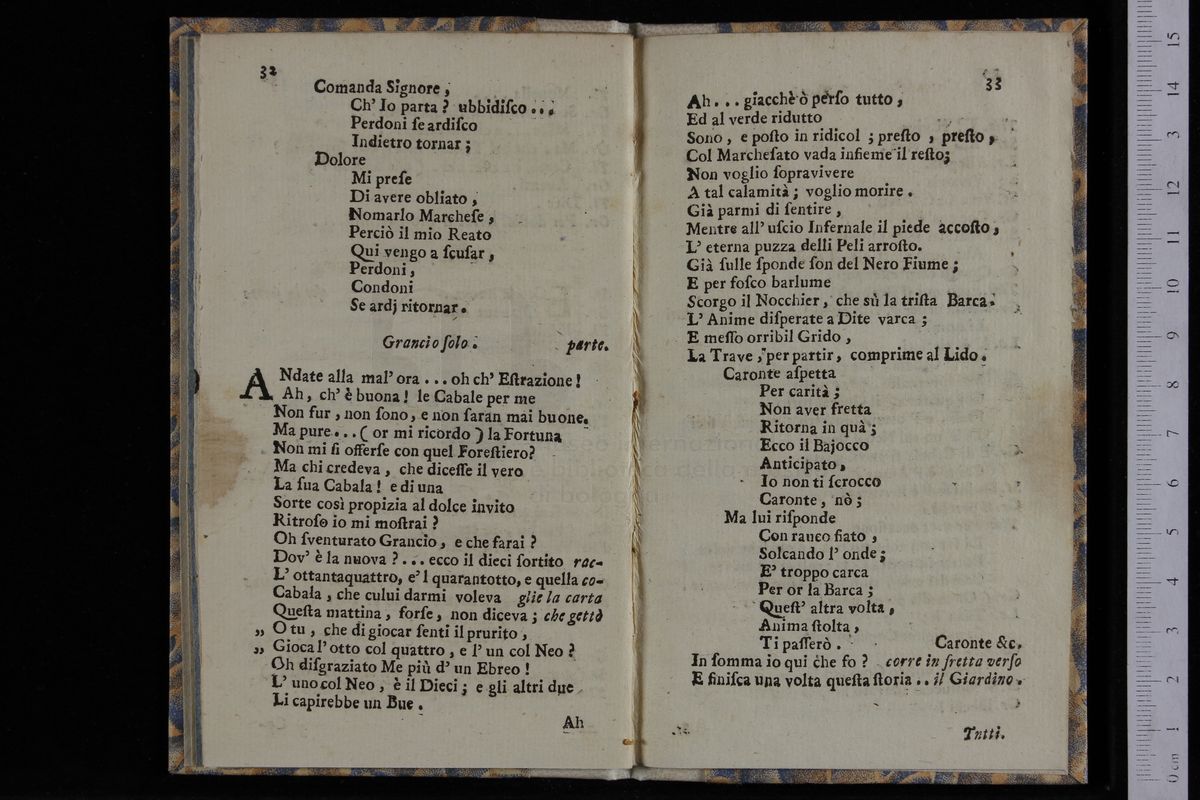 32
Comanda Signore,
Ch' Io parta? ubbidiſco...
Perdoni ſe ardiſco
Indietro tornar;
Dolore
Mi preſe
Di avere obliato,
Nomarlo Marcheſe,
Perciò il mio Reato
Qui vengo a ſcuſar,
Perdoni,
Condoni
Se ardj ritornar.
Grancio ſolo. parte.
ANdate alla mal' ora... oh ch' Eſtrazione!
Ah, ch' è buona! le Cabale per me
Non fur, non ſono, e non ſaran mai buone.
Ma pure... (or mi ricordo) la Fortuna
Non mi ſi offerſe con quel Foreſtiero?
Ma chi credeva, che diceſſe il vero
La ſua Cabala! e di una
Sorte così propizia al dolce invito
Ritroſo io mi moſtrai?
Oh ſventurato Grancio, e che farai?
Dov' è la nuova?... ecco il dieci ſortito rac-
L' ottantaquattro, e' l quarantotto, e quella co-
Cabala, che cului darmi voleva glie la carta
Queſta mattina, forſe, non diceva; che gettò
„ O tu, che di giocar ſenti il prurito,
„ Gioca l' otto col quattro, e l' un col Neo?
Oh diſgraziato Me più d' un Ebreo!
L' uno col Neo, è il Dieci; e gli altri due
Li capirebbe un Bue.
Ah
33
Ah... giacchè ò perſo tutto,
Ed al verde ridutto
Sono, e poſto in ridicol; preſto, preſto,
Col Marcheſato vada inſieme il reſto;
Non voglio ſopravivere
A tal calamità; voglio morire.
Già parmi di ſentire,
Mentre all' uſcio Infernale il piede accoſto,
L' eterna puzza delli Peli arroſto.
Già ſulle ſponde ſon del Nero Fiume;
E per foſco barlume
Scorgo il Nocchier, che sù la triſta Barca.
L' Anime diſperate a Dite varca;
E meſſo orribil Grido,
La Trave, per partir, comprime al Lido.
Caronte aſpetta
Per carità;
Non aver fretta
Ritorna in quà;
Ecco il Bajocco
Anticipato,
Io non ti ſcrocco
Caronte, nò;
Ma lui riſponde
Con rauco fiato,
Solcando l' onde;
E' troppo carca
Per or la Barca;
Queſt' altra volta,
Anima ſtolta,
Ti paſſerò. Caronte &c.
In ſomma io qui che fo? corre in fretta verſo
E finiſca una volta queſta ſtoria.. il Giardino.
Tutti.